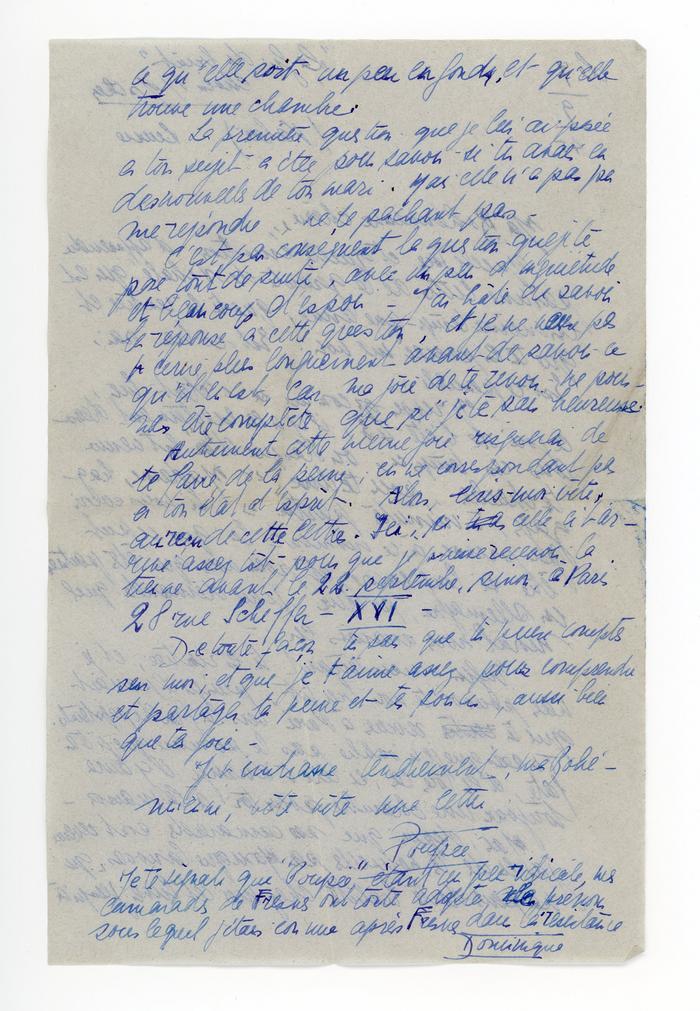 ce qu'elle soit un peu en fonds, et qu'elle
trouve une chambre.
La première question que je lui ai posée
à ton sujet a été pour savoir si tu avais eu
des nouvelles de ton mari. Mais elle n'a pas pu
me répondre ne le sachant pas -
C'est par conséquent la question que je te
pose tout de suite, avec un peu d'inquiétude
et beaucoup d'espoir - J'ai hâte de savoir
la réponse à cette question, et je ne veux pas
plus longuement avant de savoir ce
qu'il en est, Car ma joie de te revoir ne pour-
ras être complète que si je te sais heureuse.
Autrement cette même joie risquerai de
te faire de la peine, en ne correspondant pas
à ton état d'esprit. Alors, écris-moi vite,
au reçu de cette lettre. Ici, si celle ci ar-
rive assez tôt pour que je puisse recevoir la
tienne avant le 22 septembre, sinon à Paris
28 rue Scheffer - XVI -
De toute façon tu sais que tu peux compter
sur moi, et que je t'aime assez pour comprendre
et partager ta peine et tes soucis, aussi bien
que ta joie -
Je t'embrasse tendrement, ma Bohé-
mienne, vite vite une lettre
Poupée
Je te signale que "Poupée" étant un peu ridicule, mes
camarades de Fresnes ont toute adopté le prénom
sous lequel j'étais connue après Fresnes dans la résistance
Dominique